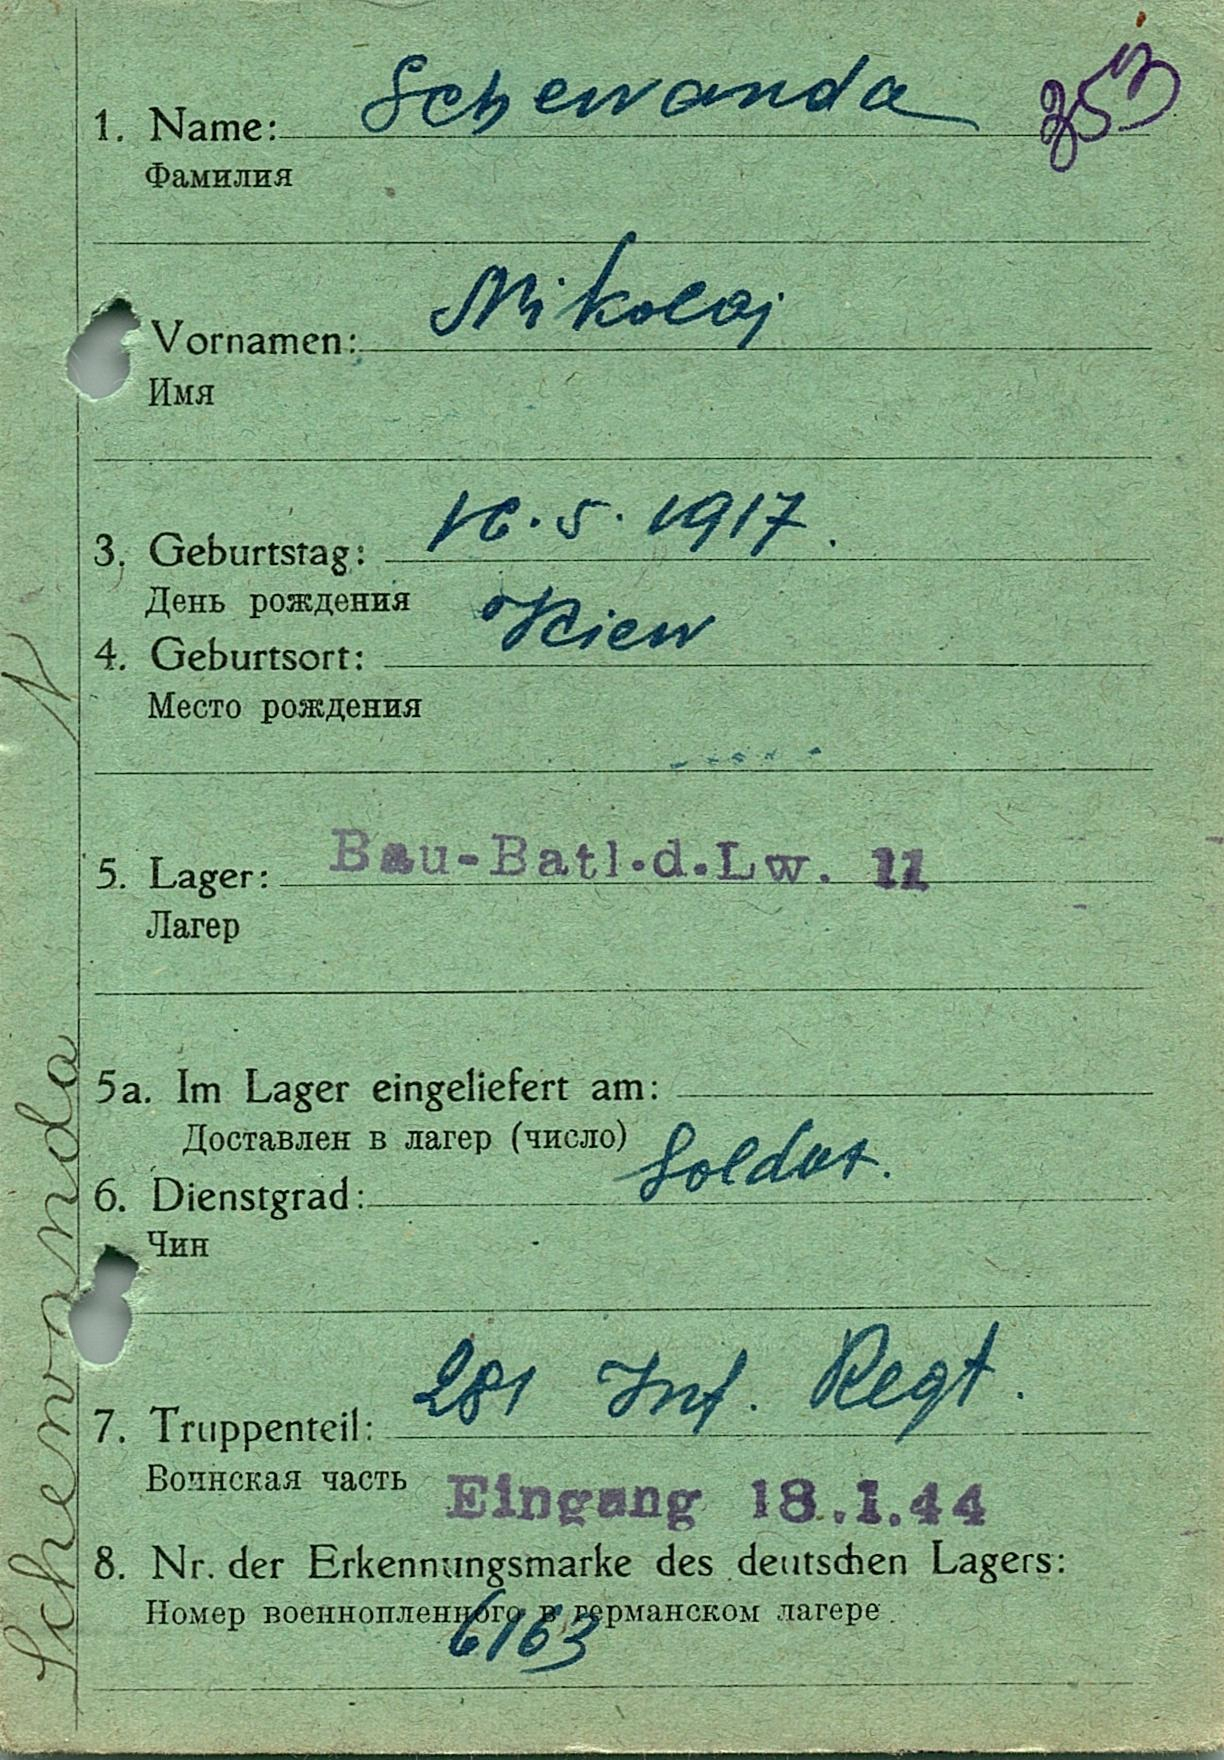 353
1. Name: Schewanda
Фамилия
Vornamen: Nikolaj
Имя
3. Geburtstag: 16.5.1917.
День рождения
4. Geburtsort: Kiew
Место рождения
5. Lager: Bau-Batl.d.Lw. 11
Лагер
5a. Im Lager eingeliefert am:
Доставлен в лагер (число)
6. Dienstgrad: Soldat.
Чин
7. Truppenteil: 281 Inf. Regt.
Воинская часть
Eingang 18.1.44
8. Nr. der Erkennungsmarke des deutschen Lagers:
Номер военнопленного в германском лагере
6163
Schewanda N